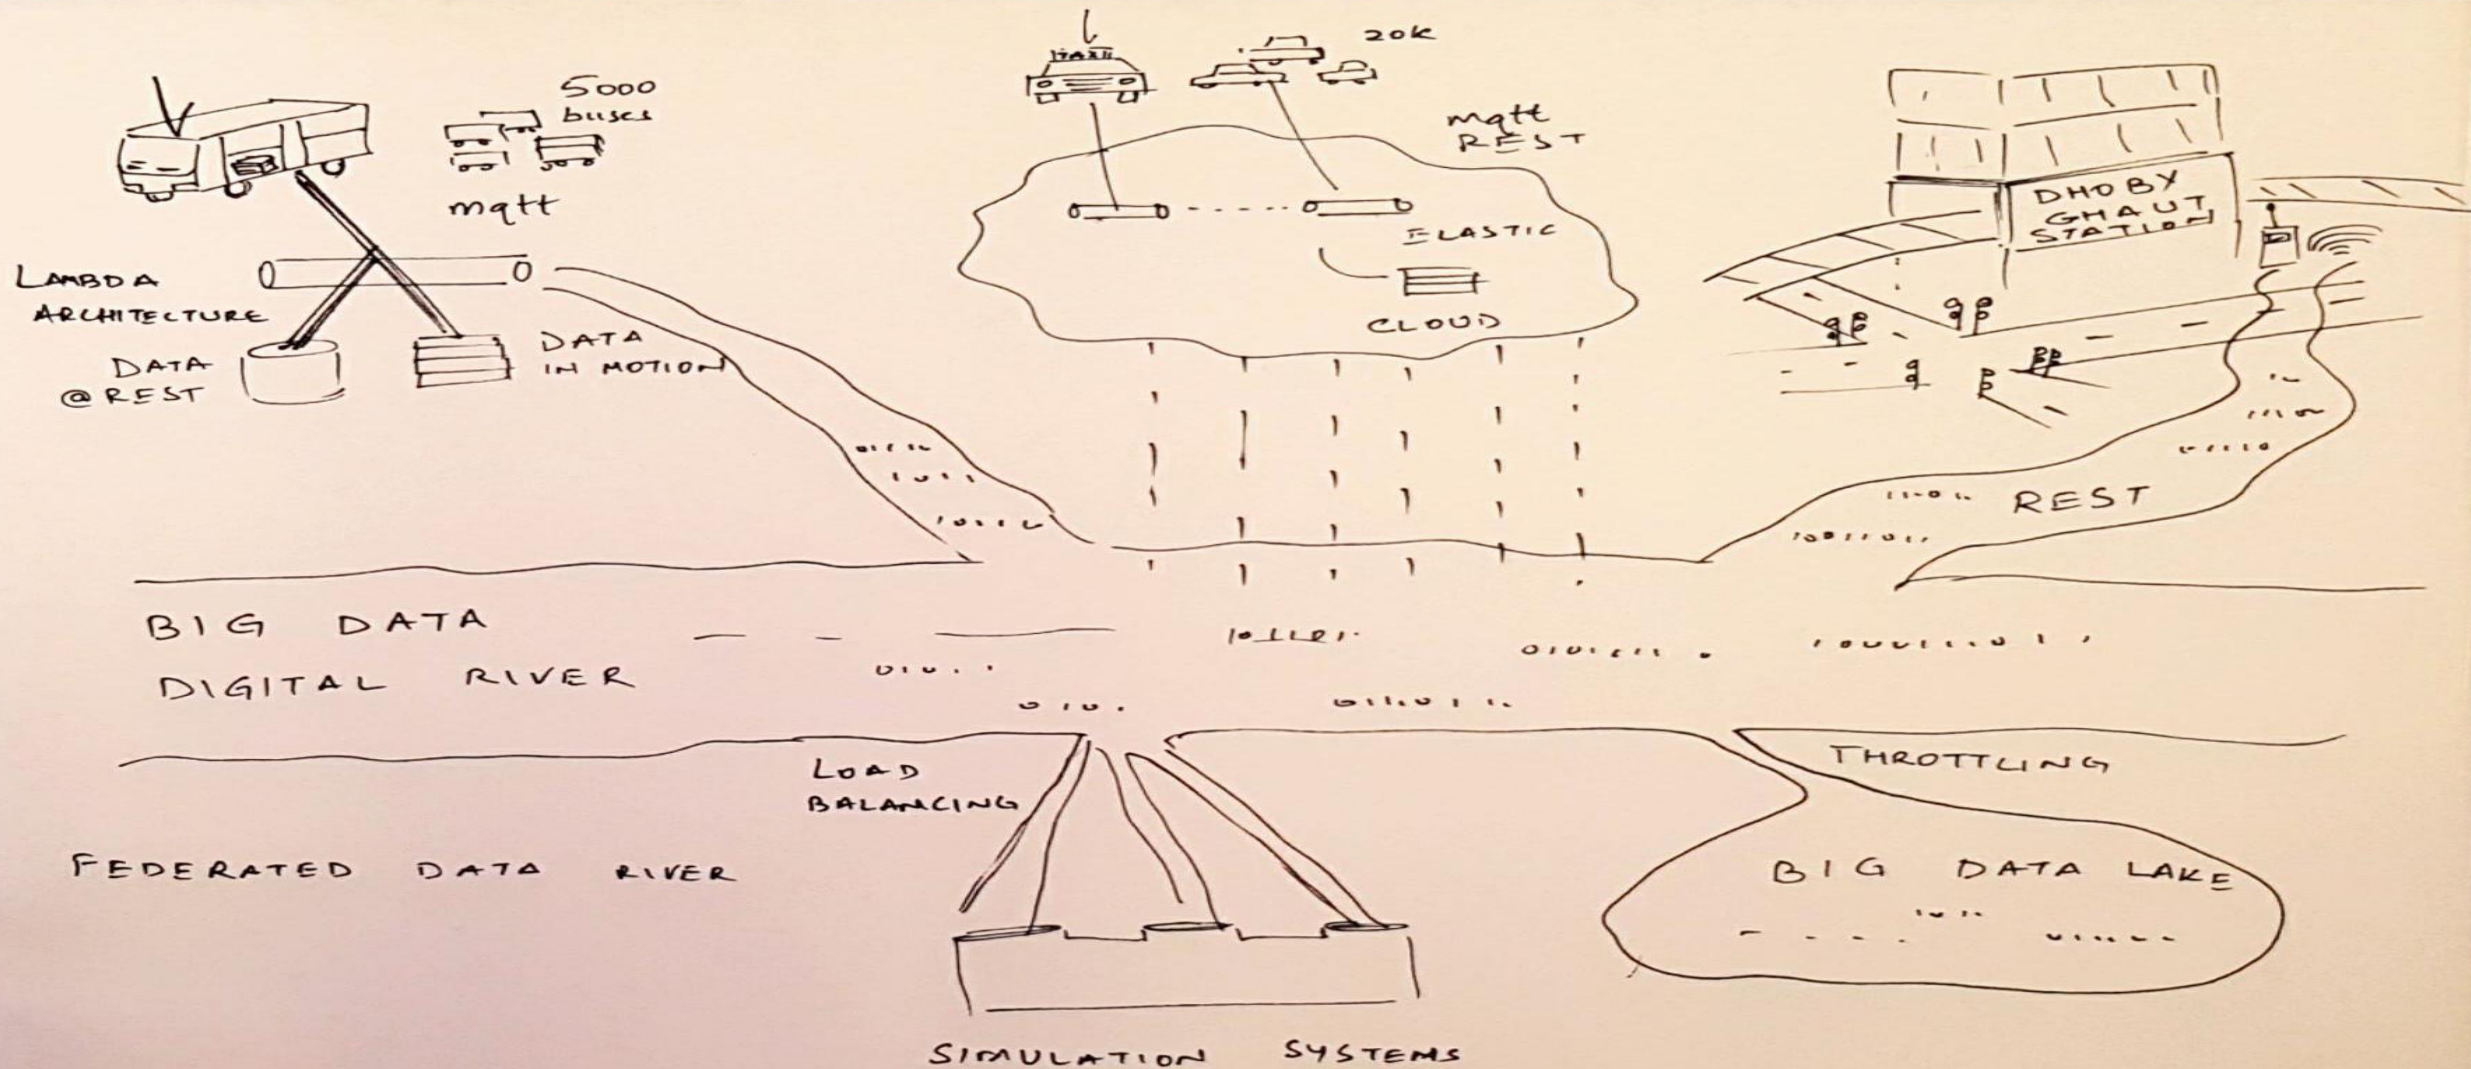 5000
buses
mqtt
LAMBDA
ARCHITECTURE
DATA
@ REST
DATA
IN MOTION
TAXI
20K
mqtt
REST
ELASTIC
CLOUD
DHOBY
GHAUT
STATION
REST
BIG DATA
DIGITAL RIVER
LOAD
BALANCING
THROTTLING
FEDERATED DATA RIVER
BIG DATA LAKE
SIMULATION SYSTEMS